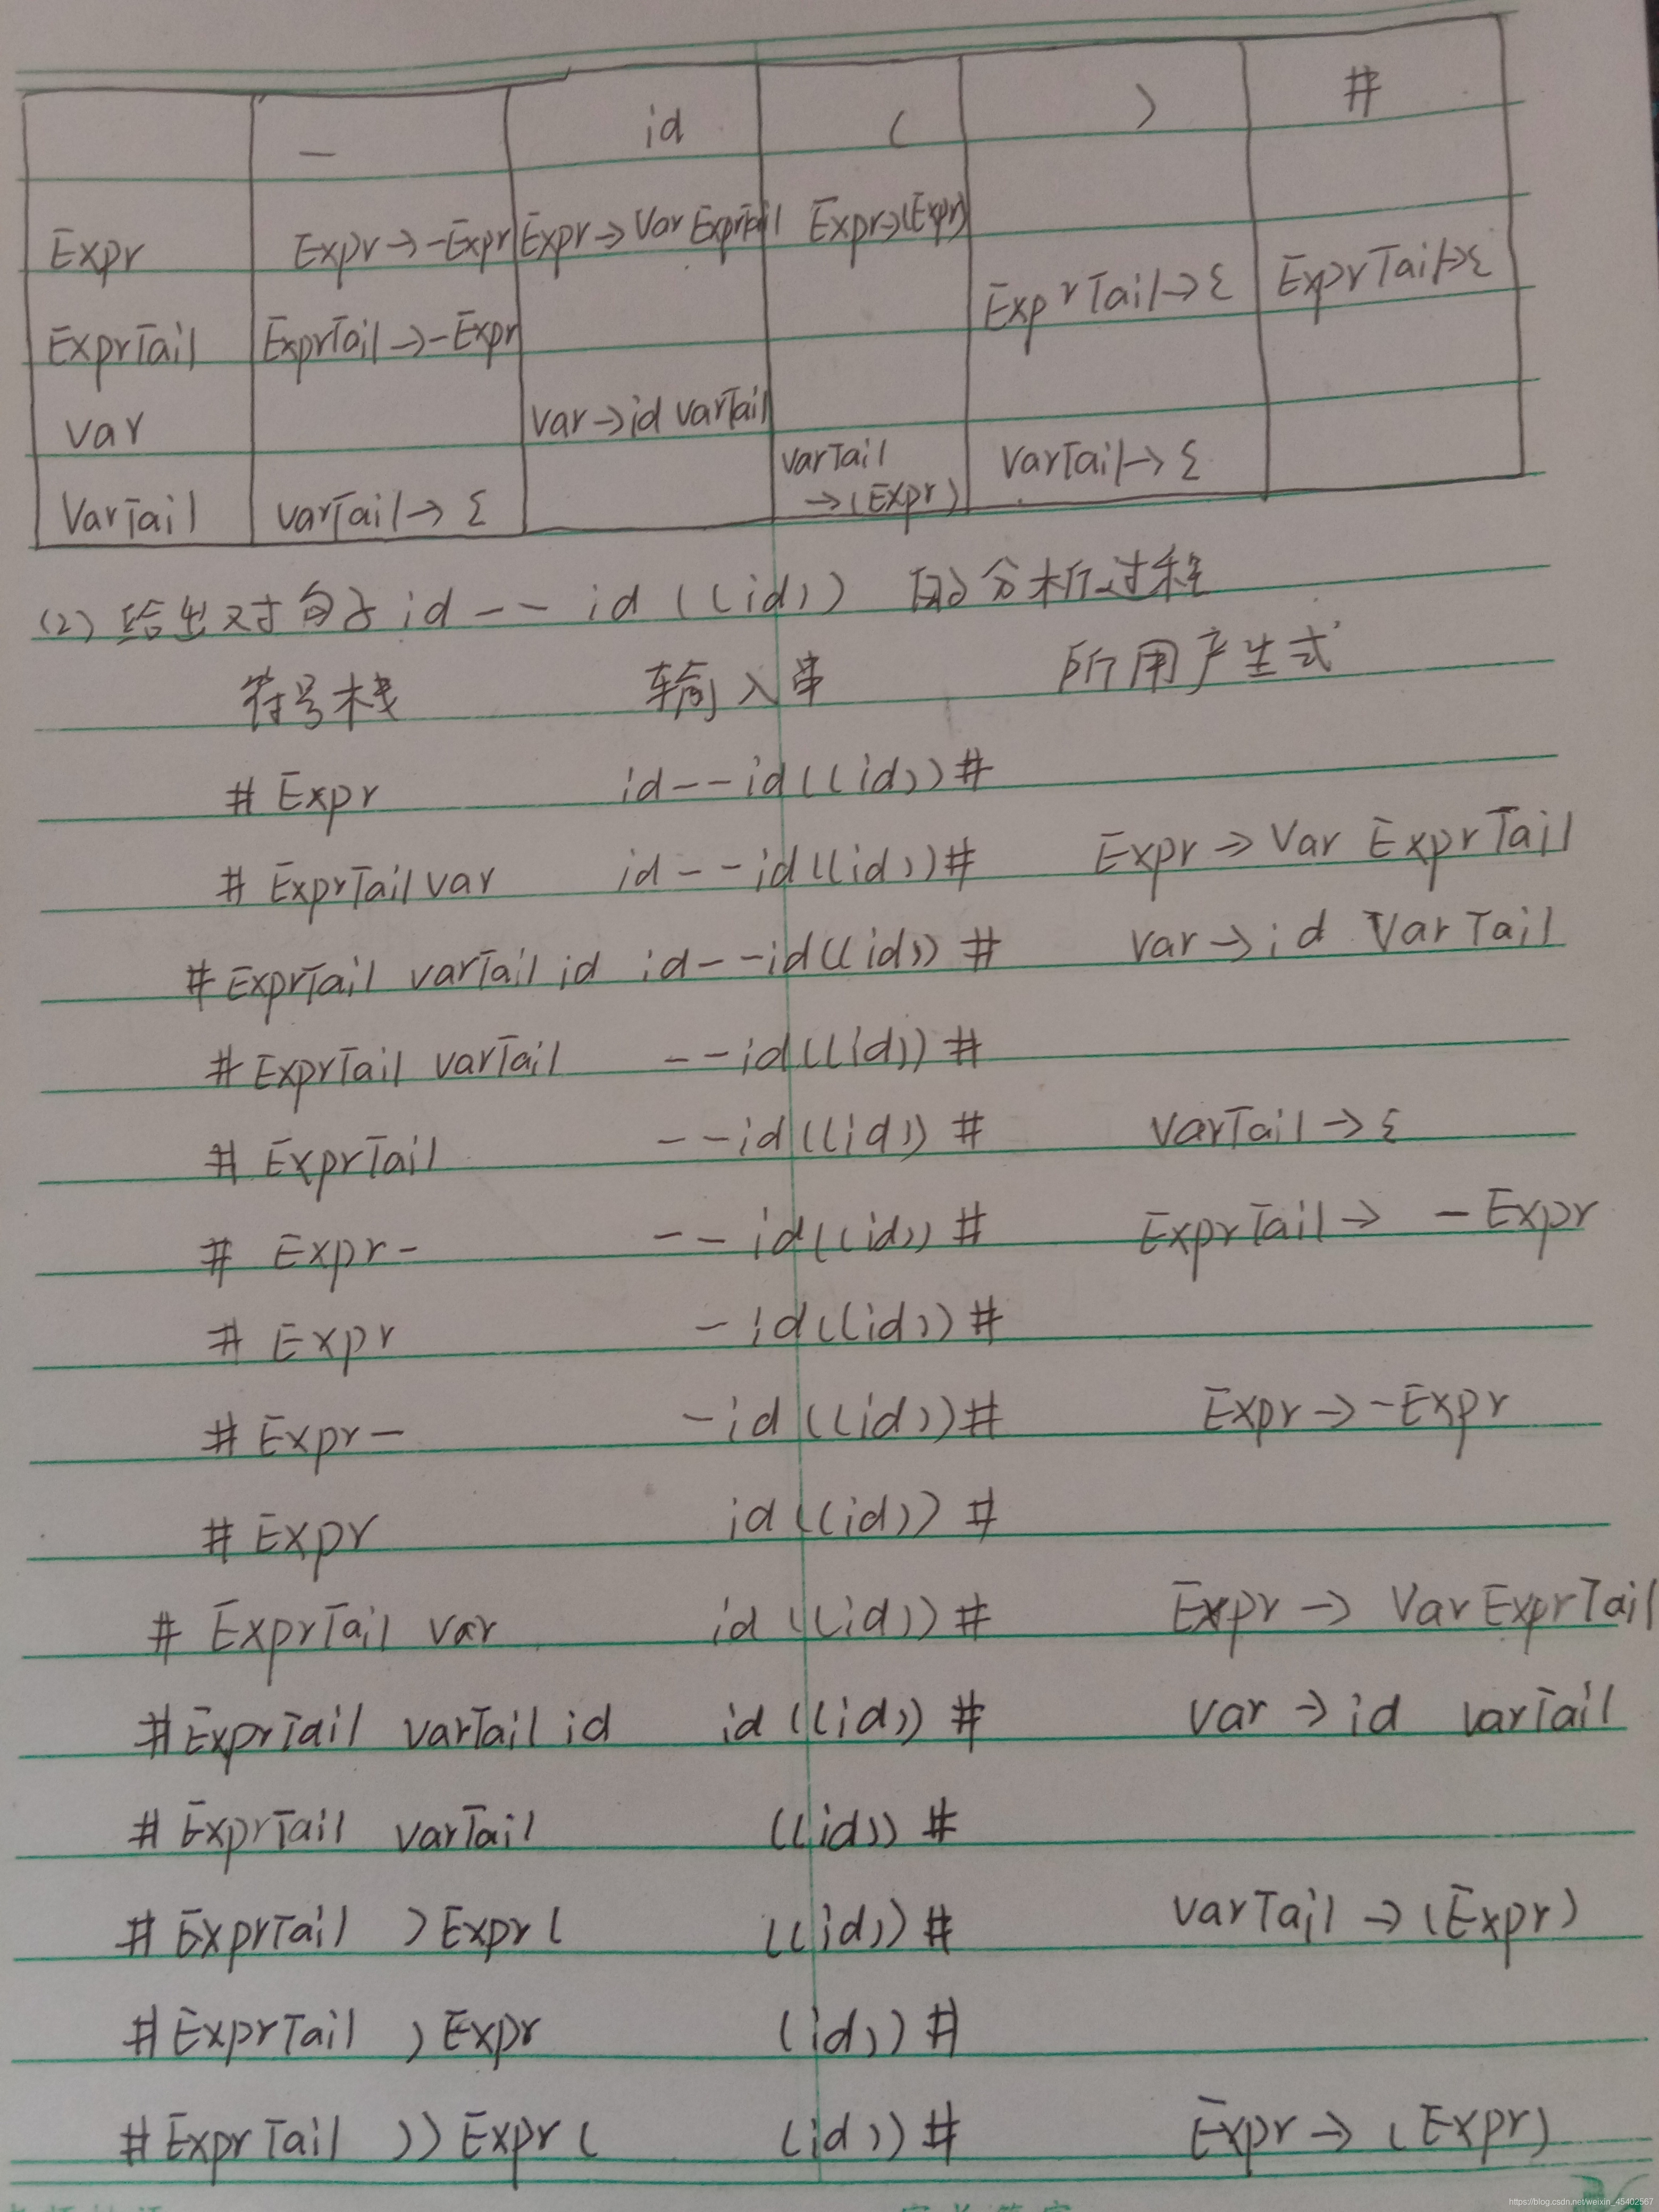 — id ( ) #
Expr Expr→-Expr Expr→Var ExprTail Expr→(Expr)
ExprTail ExprTail→-Expr ExprTail→ε ExprTail→ε
Var Var→id varTail
VarTail varTail→ε varTail→(Expr) varTail→ε
(2) 给出对句子 id -- id((id)) 的分析过程
符号栈 输入串 所用产生式
# Expr id--id((id))#
# ExprTail var id--id((id))# Expr→Var ExprTail
# ExprTail varTail id id--id((id))# var→id VarTail
# ExprTail varTail --id((id))#
# ExprTail --id((id))# varTail→ε
# Expr- --id((id))# ExprTail→ -Expr
# Expr -id((id))#
# Expr- -id((id))# Expr→-Expr
# Expr id((id))#
# ExprTail var id((id))# Expr→VarExprTail
# ExprTail varTail id id((id))# var→id varTail
# ExprTail varTail ((id))#
# ExprTail )Expr( ((id))# varTail→(Expr)
# ExprTail )Expr (id))#
# ExprTail ))Expr( (id))# Expr→(Expr)
https://blog.csdn.net/weixin_45402567